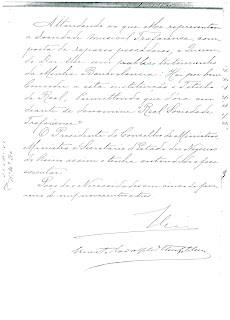 Attendendo ao que Me representou
a Sociedade Musical Trafariense, com
posta de rapazes pescadores, e Queren
do dar-lhe um publico testemunho
da Minha Benevolencia: Hei por bem
Conceder a esta instituição o Titulo
de Real, permittindo que d'ora em
deante se denomine "Real Sociedade
Trafariense"
O Presidente do Conselho de Ministros
Ministro e Secretario d'Estado dos Negocios
do Reino assim o tenha entendido e faça
executar.
Paço das Necessidades em cinco de
de mil novecentos e
Rei
Ernesto Rodolpho Hintze Ribeiro